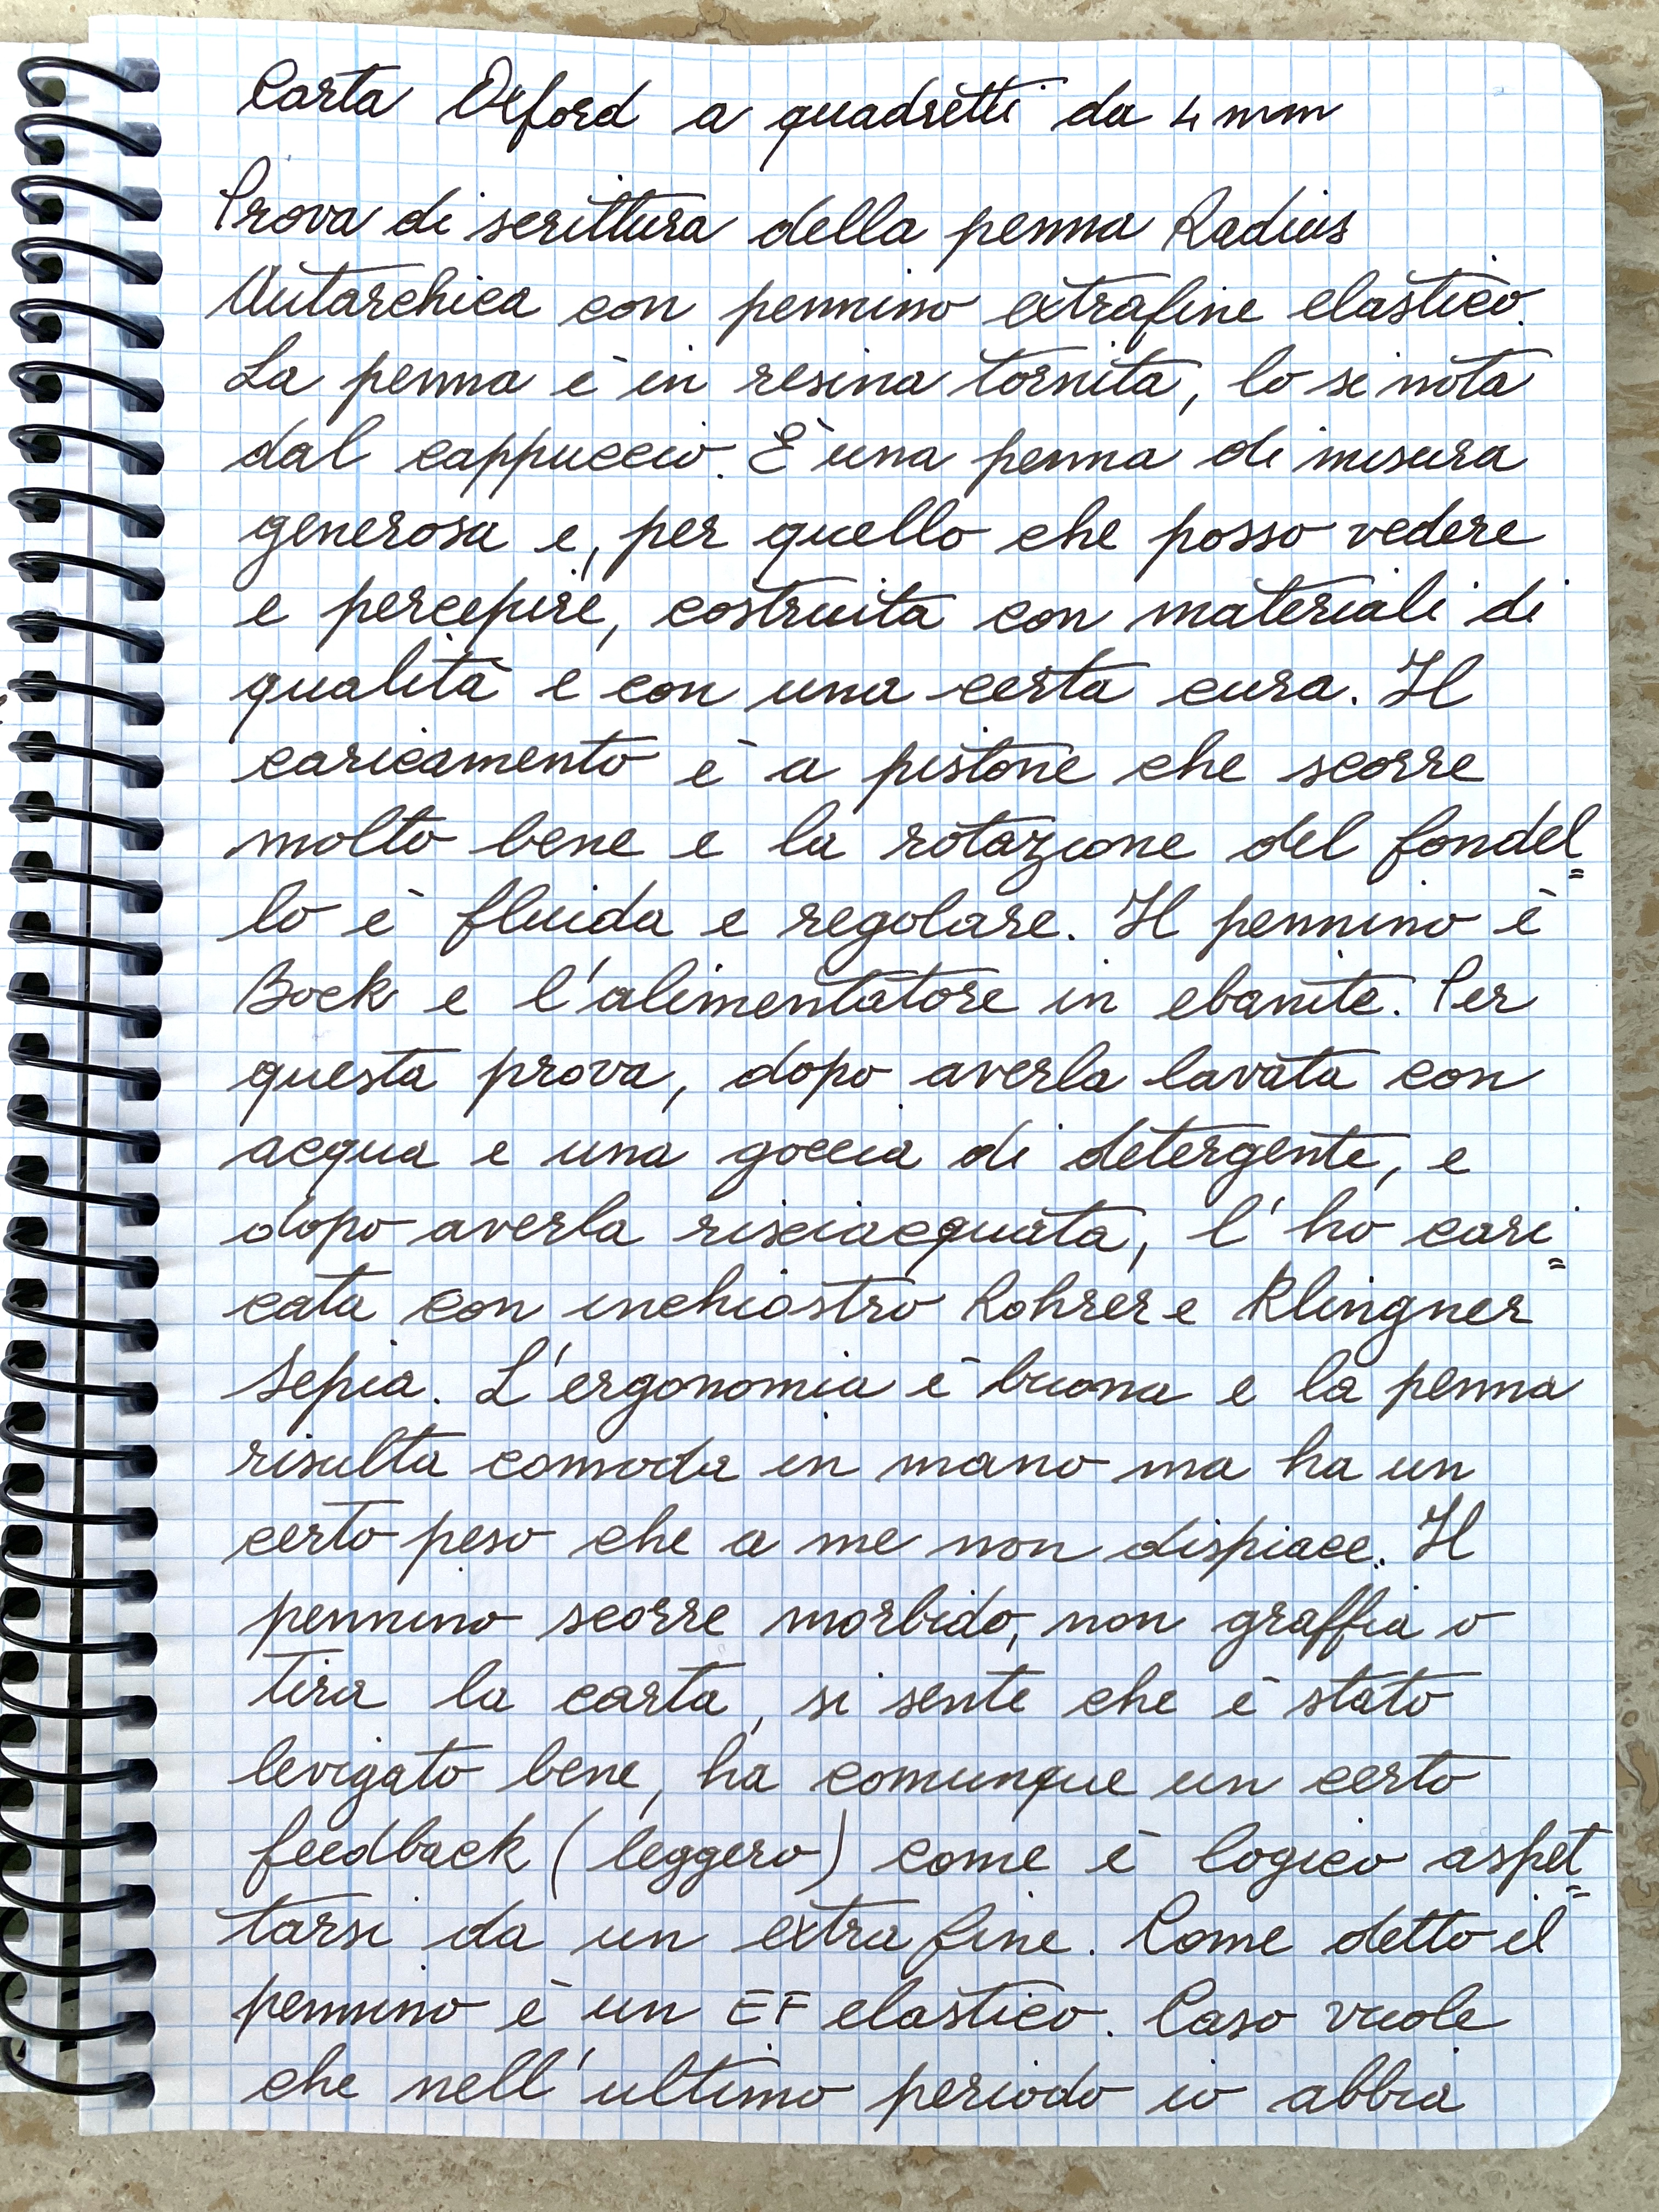 Carta Oxford a quadretti da 4 mm
Prova di scrittura della penna Radius
Autarchica con pennino extrafine elastico.
La penna è in resina tornita, lo si nota
dal cappuccio. È una penna di misura
generosa e, per quello che posso vedere
e percepire, costruita con materiali di
qualità e con una certa cura. Il
caricamento è a pistone che scorre
molto bene e la rotazione del fondel=
lo è fluida e regolare. Il pennino è
Bock e l'alimentatore in ebanite. Per
questa prova, dopo averla lavata con
acqua e una goccia di detergente, e
dopo averla risciacquata, l'ho cari=
cata con inchiostro Rohrer e Klingner
Sepia. L'ergonomia è buona e la penna
risulta comoda in mano ma ha un
certo peso che a me non dispiace. Il
pennino scorre morbido, non graffia o
tira la carta, si sente che è stato
levigato bene, ha comunque un certo
feedback (leggero) come è logico aspet=
tarsi da un extra fine. Come detto il
pennino è un EF elastico. Caso vuole
che nell'ultimo periodo io abbia